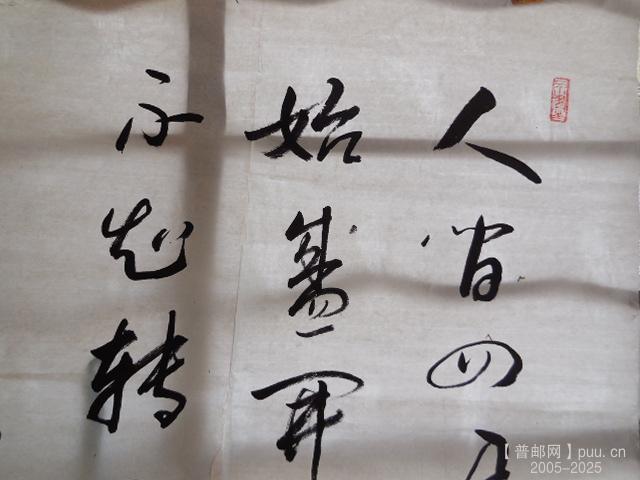 人间四
始盛开
不知转
【普邮网】puu.cn
2005-2025